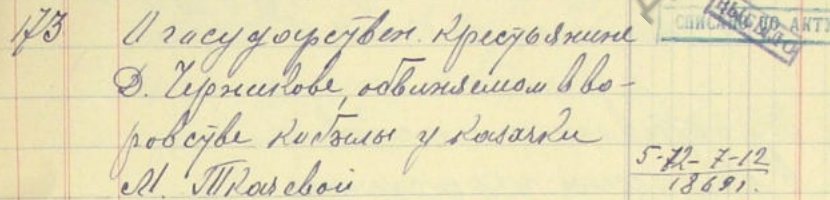 173 О государствен. крестьянине
Д. Черникове, обвиняемом в во-
ровстве кобылы у казачки
М. Ткачевой
5-12-7-12
1869 г.
СПИСАНО ПО АКТУ
ВЫБЫЛО